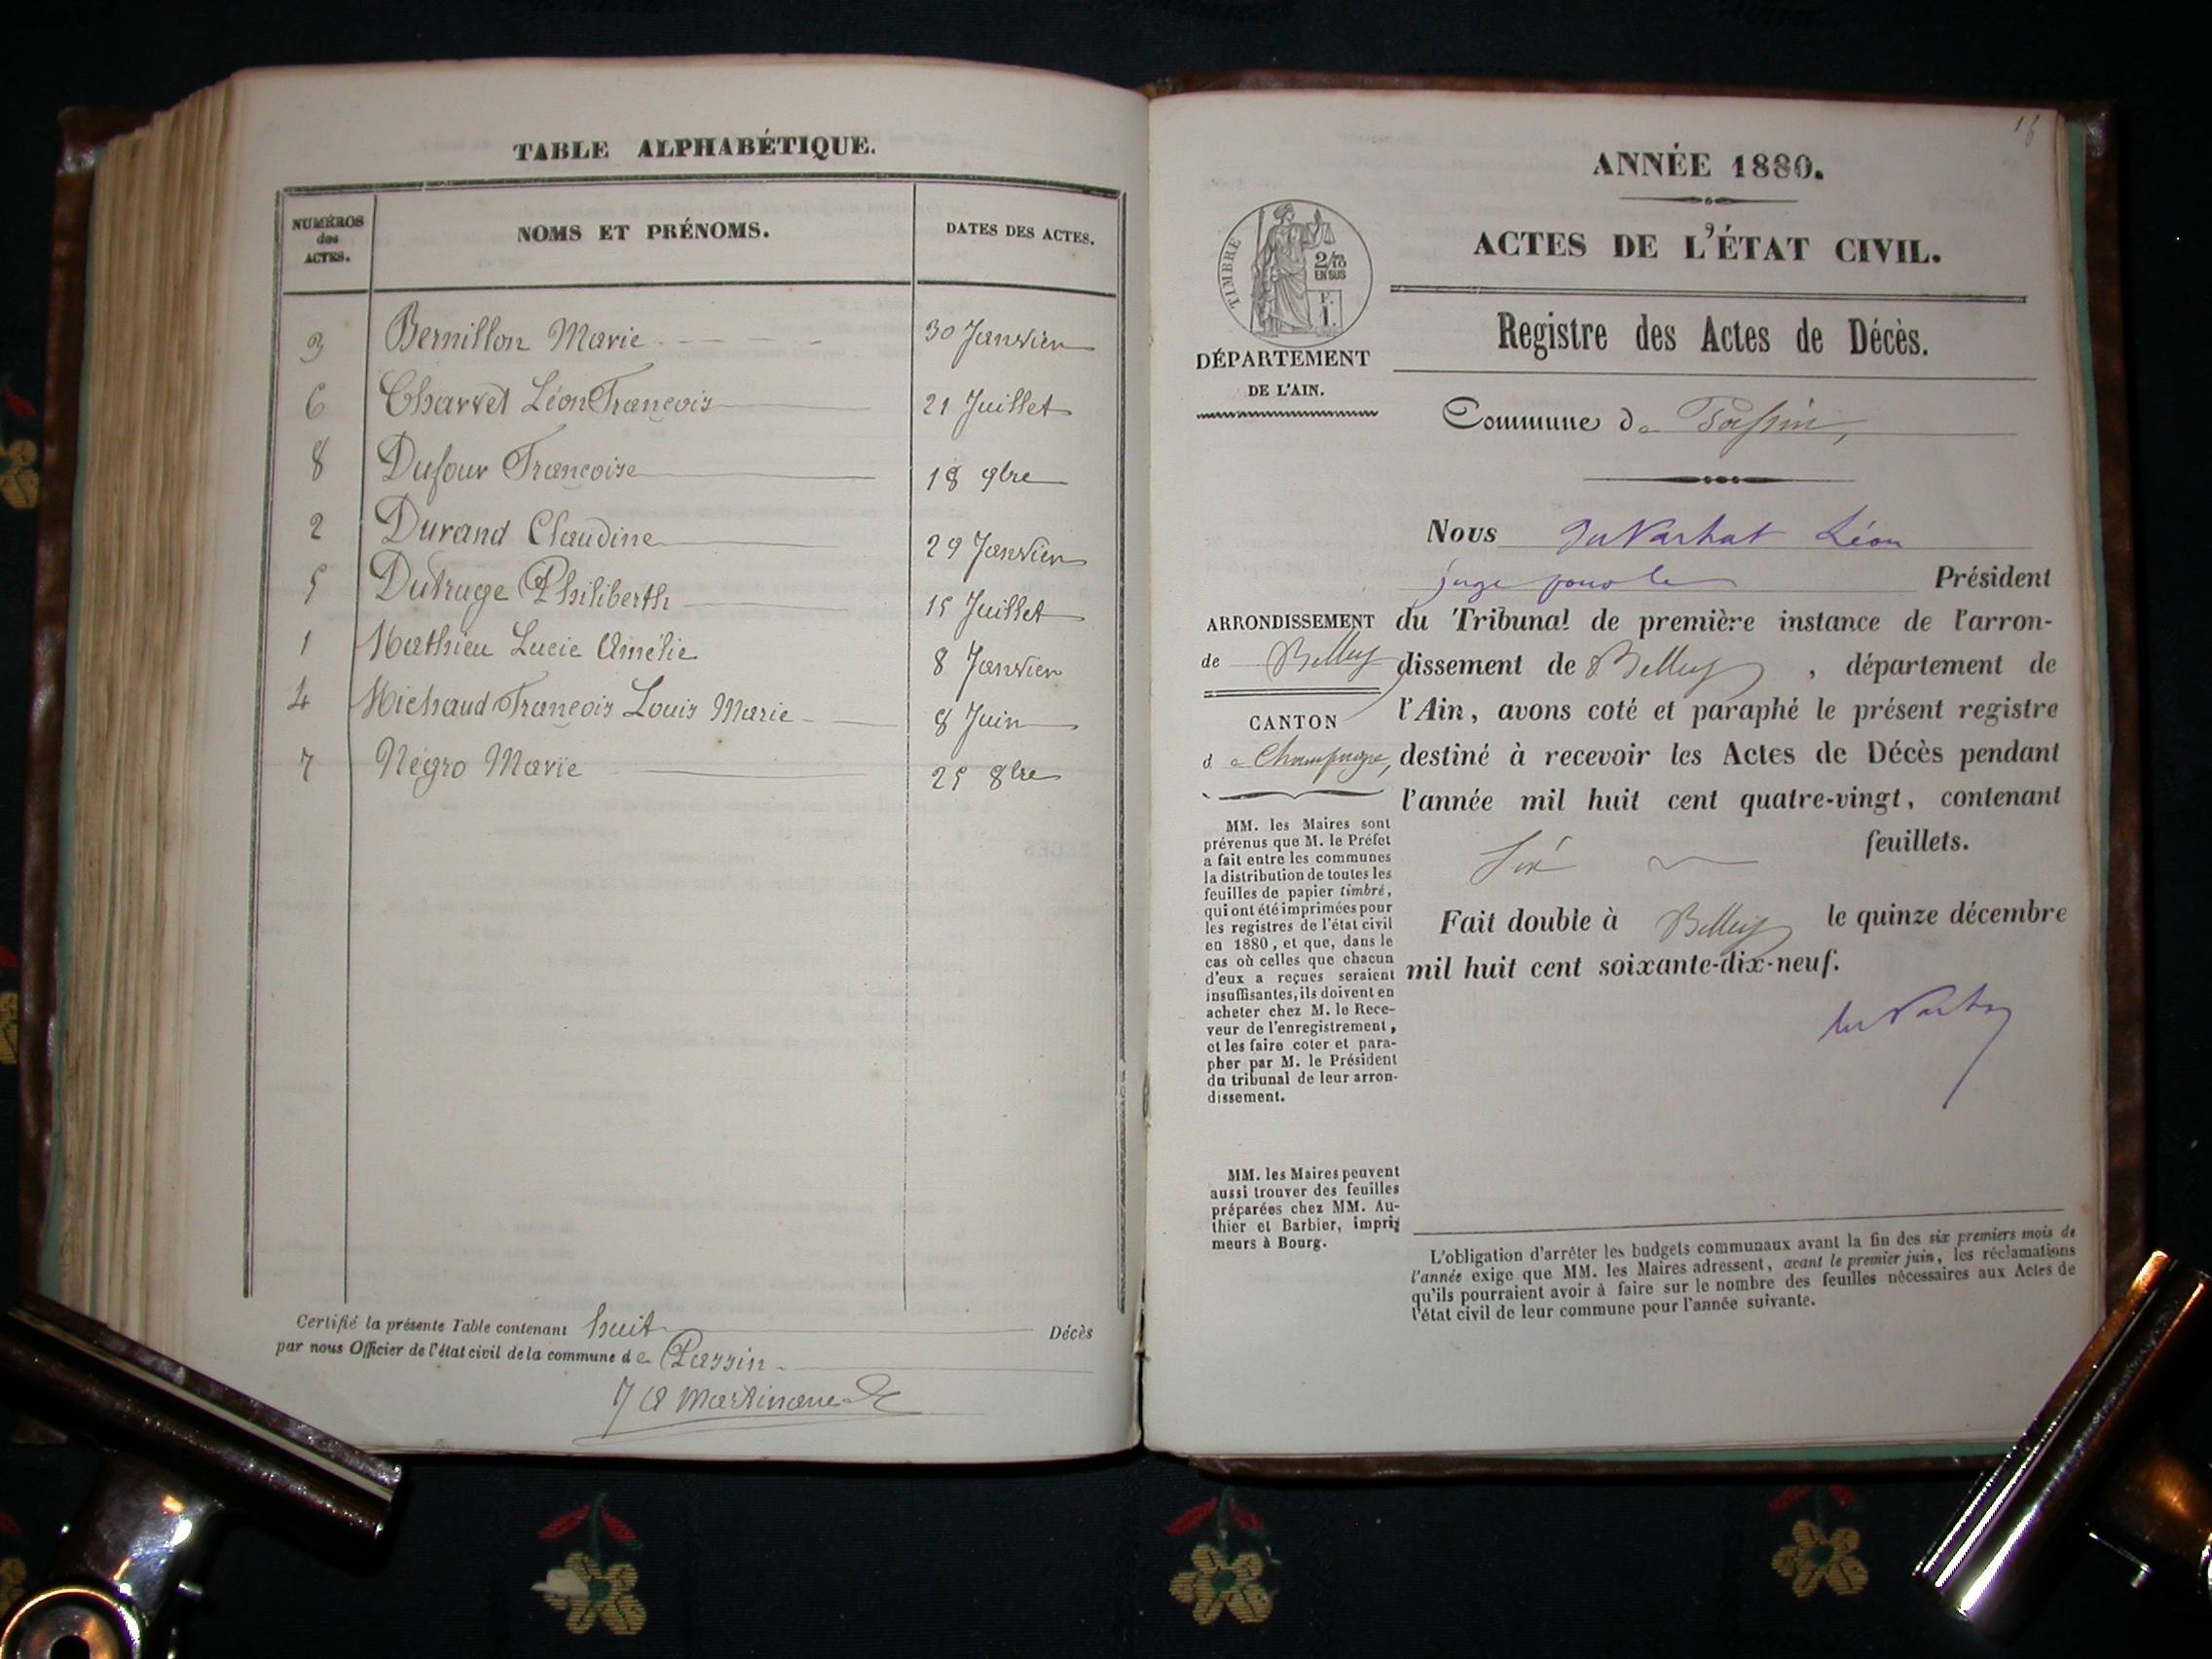 TABLE ALPHABÉTIQUE.
NUMÉROS des ACTES.
NOMS ET PRÉNOMS.
DATES DES ACTES.
3 Bernillon Marie 30 Janvier
6 Charvet Léon François 21 Juillet
8 Dufour Françoise 18 9bre
2 Durand Claudine 29 Janvier
5 Dutruge Philiberth 15 Juillet
1 Mathieu Lucie Amélie 8 Janvier
4 Michaud François Louis Marie 8 Juin
7 Négro Marie 25 8bre
Certifié la présente Table contenant huit Décès
par nous Officier de l'état civil de la commune de Passin
Martinand
ANNÉE 1880.
ACTES DE L'ÉTAT CIVIL.
TIMBRE
2/10
EN SUS
F.
1.
Registre des Actes de Décès.
DÉPARTEMENT
DE L'AIN.
Commune de Passin,
Nous Léon
juge pour le Président
du Tribunal de première instance de l'arron-
dissement de Belley, département de
l'Ain, avons coté et paraphé le présent registre
destiné à recevoir les Actes de Décès pendant
l'année mil huit cent quatre-vingt, contenant
Six feuillets.
Fait double à Belley le quinze décembre
mil huit cent soixante-dix-neuf.
ARRONDISSEMENT
de Belley
CANTON
de Champagne,
MM. les Maires sont
prévenus que M. le Préfet
a fait entre les communes
la distribution de toutes les
feuilles de papier timbré,
qui ont été imprimées pour
les registres de l'état civil
en 1880, et que, dans le
cas où celles que chacun
d'eux a reçues seraient
insuffisantes, ils doivent en
acheter chez M. le Rece-
veur de l'enregistrement,
et les faire coter et para-
pher par M. le Président
du tribunal de leur arron-
dissement.
MM. les Maires peuvent
aussi trouver des feuilles
préparées chez MM. Au-
thier et Barbier, impri-
meurs à Bourg.
L'obligation d'arrêter les budgets communaux avant la fin des six premiers mois de
l'année exige que MM. les Maires adressent, avant le premier juin, les réclamations
qu'ils pourraient avoir à faire sur le nombre des feuilles nécessaires aux Actes de
l'état civil de leur commune pour l'année suivante.